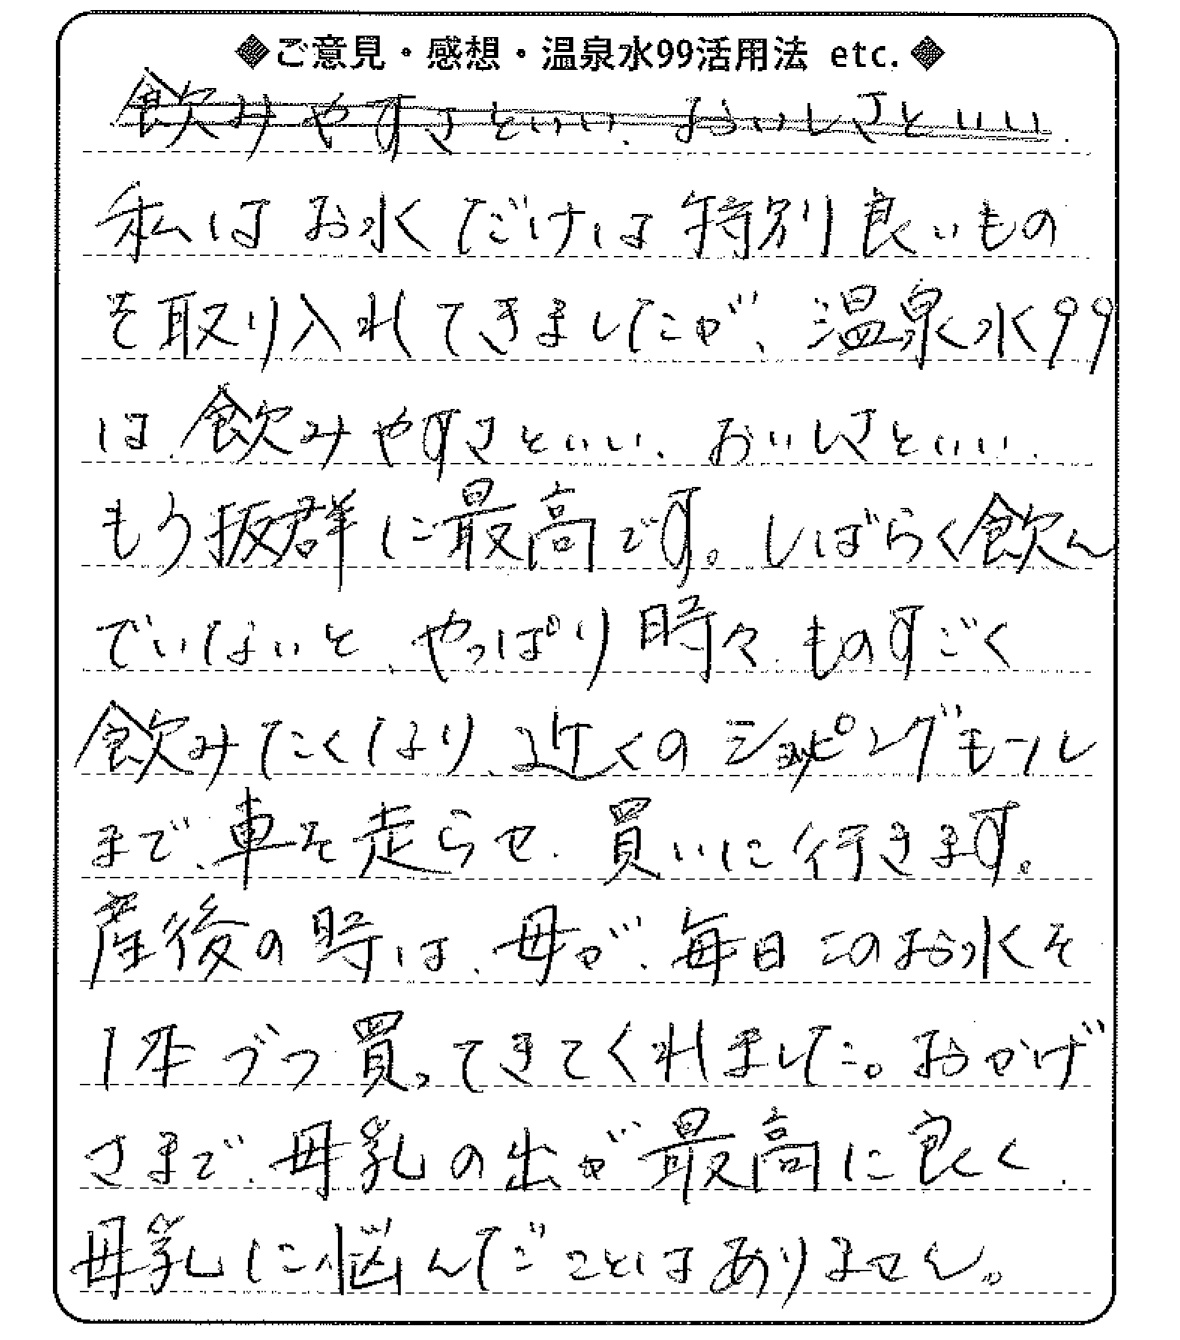 ◆ご意見・感想・温泉水99活用法 etc.◆
飲みやすさといい、おいしさといい、
私はお水だけは特別良いもの
を取り入れてきましたが、温泉水99
は、飲みやすさといい、おいしさといい、
もう抜群に最高です。しばらく飲ん
でいないと、やっぱり時々、ものすごく
飲みたくなり、近くのショッピングモール
まで、車を走らせ、買いに行きます。
産後の時は、母が、毎日このお水を
1本づつ買ってきてくれました。おかげ
さまで、母乳の出が最高に良く、
母乳に悩んだことはありません。